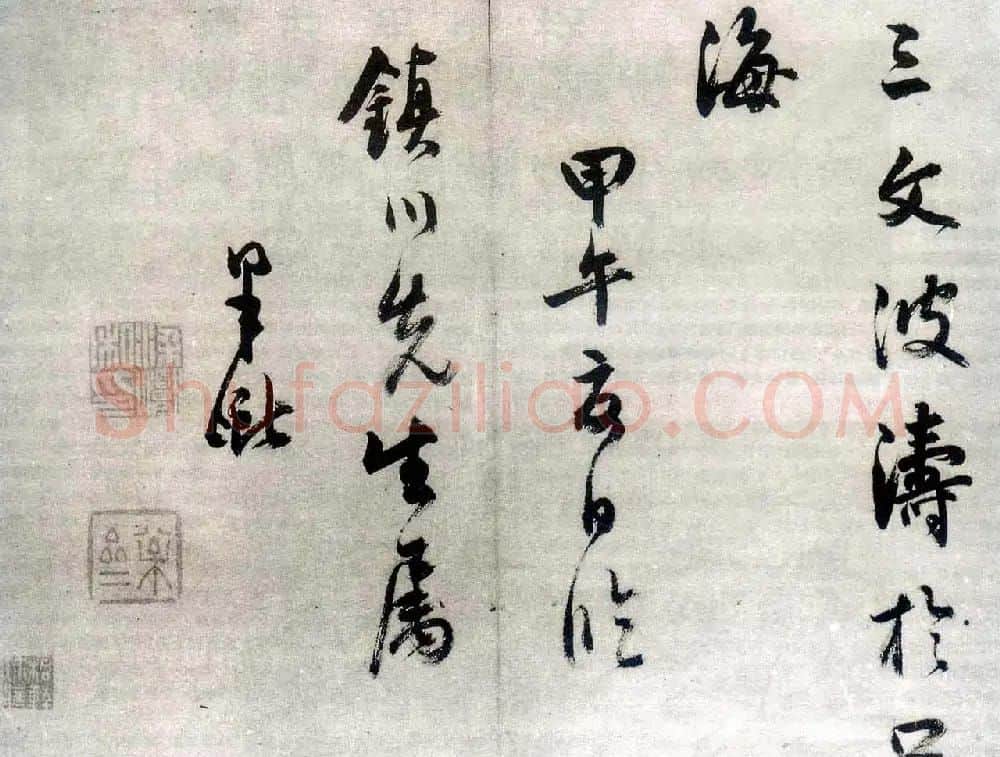 三文波濤於
海
甲午夏日臨
鎮川先生属
Shufaziliao.COM